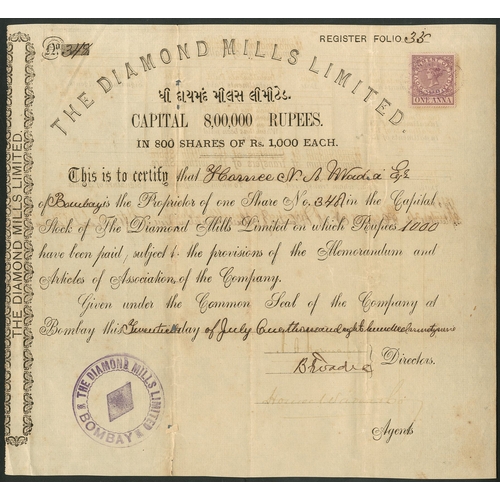 No. 348
REGISTER FOLIO 35
THE DIAMOND MILLS LIMITED.
ધી દાયમંદ મીલસ લીમીટેડ.
CAPITAL 8,00,000 RUPEES.
IN 800 SHARES OF Rs. 1,000 EACH.
ONE ANNA
This is to certify that N. A. Wadia Esq
of Bombay is the Proprietor of one Share No. 348 in the Capital
Stock of The Diamond Mills Limited on which Rupees 1000
have been paid, subject to the provisions of the Memorandum and
Articles of Association, of the Company.
Given under the Common Seal of the Company at
Bombay this day of July One thousand eight hundred
Directors.
Agents
THE DIAMOND MILLS LIMITED
BOMBAY
THE DIAMOND MILLS LIMITED.